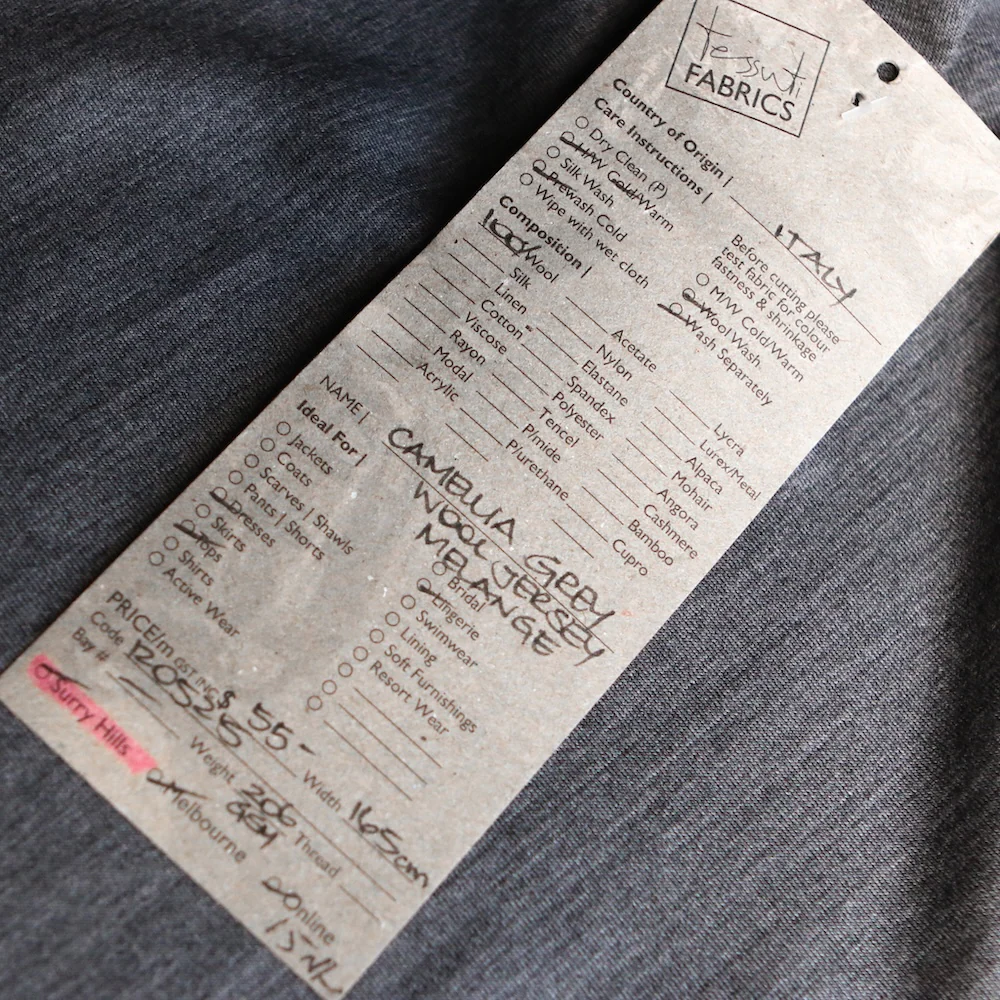 tessuti
FABRICS
Country of Origin | ITALY
Care Instructions |
Dry Clean (P)
H/W Cold/Warm
Silk Wash
Prewash Cold
Wipe with wet cloth
Before cutting please
test fabric for colour
fastness & shrinkage
M/W Cold/Warm
Wool Wash
Wash Separately
Composition |
100% Wool
Silk
Linen
Cotton
Viscose
Rayon
Modal
Acrylic
Acetate
Nylon
Elastane
Spandex
Polyester
Tencel
P/mide
P/urethane
Lycra
Lurex/Metal
Alpaca
Mohair
Angora
Cashmere
Bamboo
Cupro
NAME | CAMELLIA GREY
WOOL JERSEY
MELANGE
Ideal For |
Jackets
Coats
Scarves | Shawls
Pants | Shorts
Dresses
Skirts
Tops
Shirts
Active Wear
Bridal
Lingerie
Swimwear
Lining
Soft Furnishings
Resort Wear
PRICE/m GST INC $ 55-
Code 120525 Width 165cm
Bay # Weight 206 GSM Thread
Surry Hills Melbourne Online